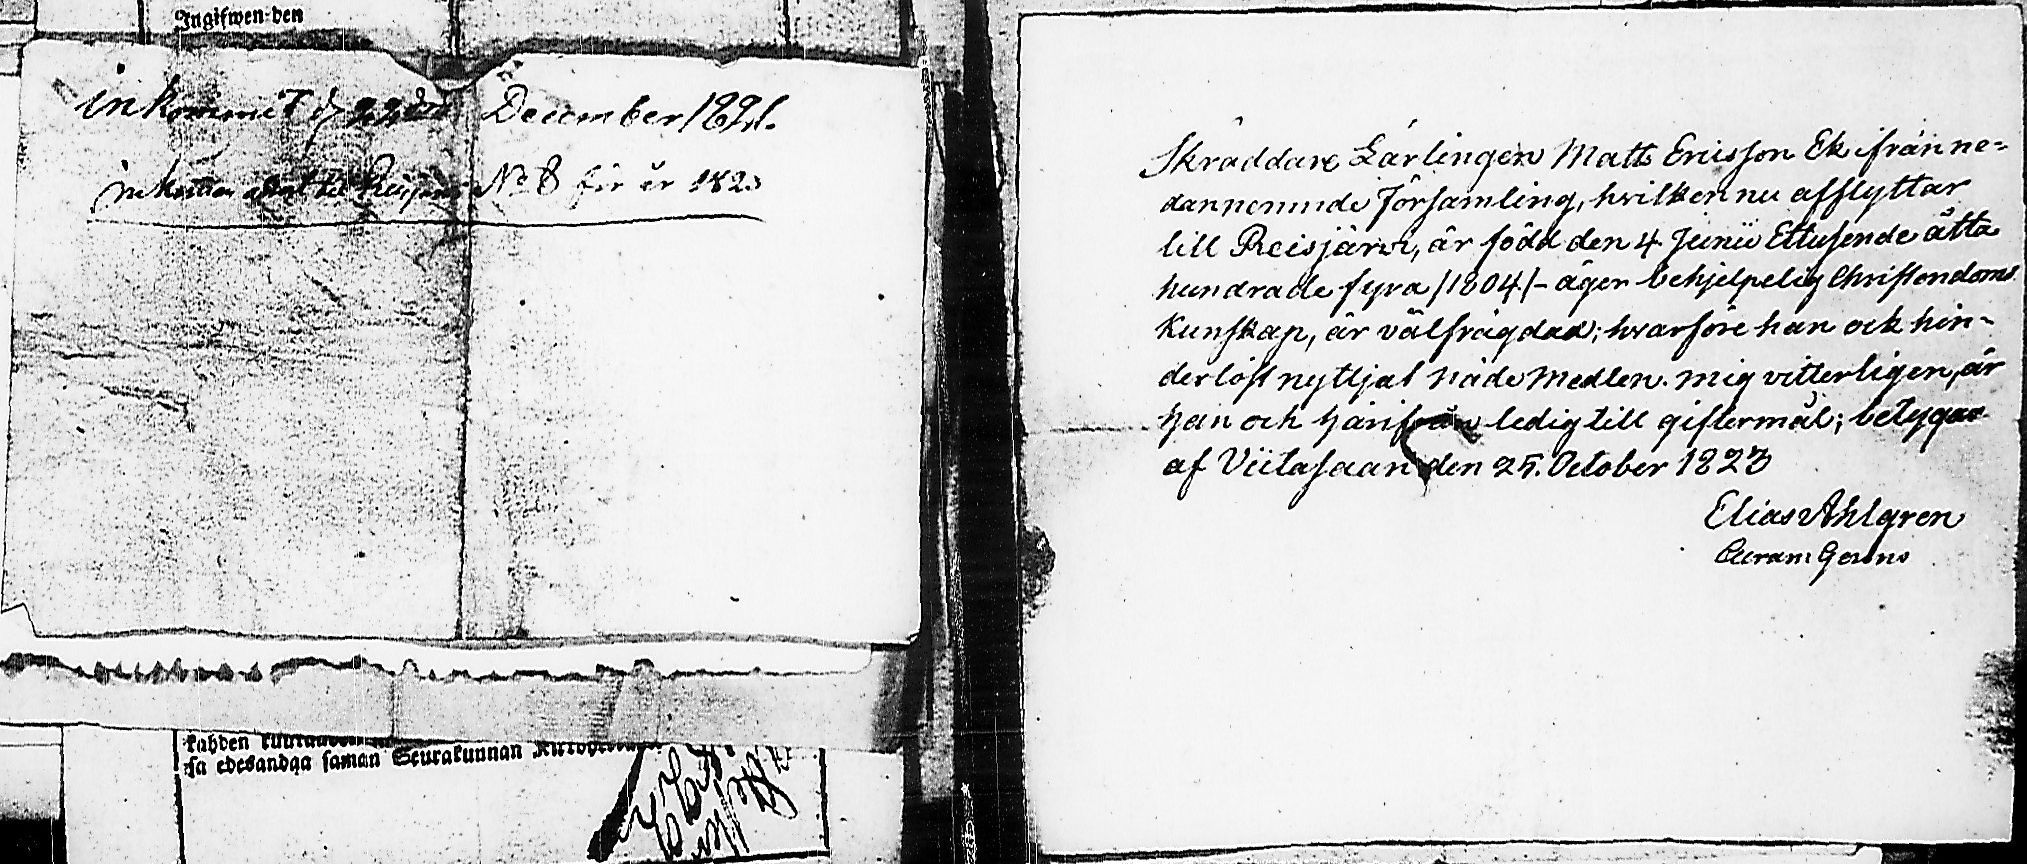 Ingifwen den
inkommit d 22dra December 1821.
No 8 för år 182
kahden
sa edesandga saman Seurakunnan
Skräddare Lärlingen Matts Ericsson Ek ifrån ne-
dannemnde Församling, hvilken nu afflyttar
till Reisjärvi, är född den 4 Junii Ettusende åtta
hundrade fyra /1804/- äger behjelpelig Christendoms
Kunskap, är välfrägdad; hvarföre han ock hin-
derlöst nyttjat Nåde Medlen. mig vitterligen, är
han och härifrån ledig till giftermål; betygar
af Viitasaari den 25. October 1823
Elias Ahlgren